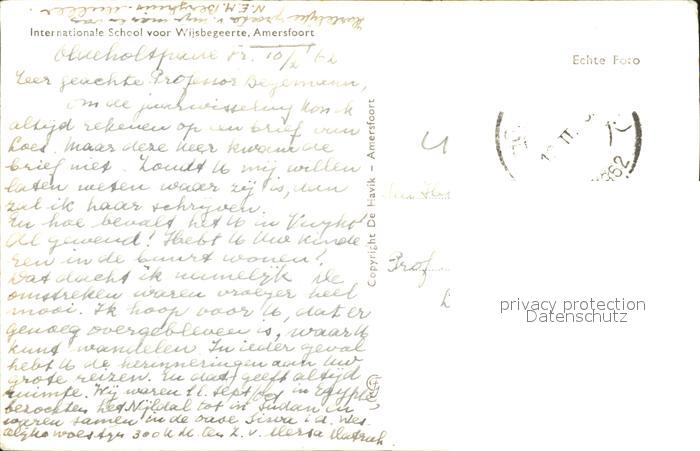 Hartelijke groeten v. mijn man en van
N.E.M. Berghuis-Mulder
Internationale School voor Wijsbegeerte, Amersfoort
10/2 '62
Zeer geachte Professor Begemann,
om de jaarwisseling kon ik
altijd rekenen op een brief van
Loes. Maar deze keer kwam de
brief niet. Zoudt U mij willen
laten weten waar zij is, dan
zal ik haar schrijven.
En hoe bevalt het U in
Al gewend? Hebt U Uw kinde
ren in de buurt wonen?
Dat dacht ik namelijk. De
omstreken waren vroeger heel
mooi. Ik hoop voor U, dat er
genoeg overgebleven is, waar U
kunt wandelen. In ieder geval
hebt U de herinneringen aan Uw
grote reizen. En dat geeft altijd
ruimte. Wij waren 11 sept. in Egypte,
bezochten het Nijldal tot in Sudan en
waren samen in de oase Siwa i.d. Wes-
telijke woestijn 300 K.M. ten Z. v. Mersa Matruh.
Copyright De Havik - Amersfoort
Echte Foto
1962
Prof
privacy protection
Datenschutz